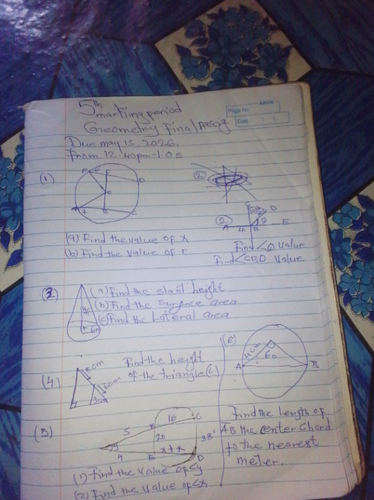 5th marking period
Geometry Final
Due may 15, 2026
From 12:40pm-1:00
(1)
(a) Find the value of x
(b) Find the value of r
(2)
A 4 B E
D
Find <Q value
<CBD value
(3)
(a) Find the slant height
(b) Find the surface area
(c) Find the lateral area
(4)
Find the height
of the triangle(c)
(6)
A
B
60
Find the length of
AB the center chord
to the nearest
meter.
(5)
5
10
C
20
4
E
x+x
D
(1) Find the value of y
(2) Find the value of x